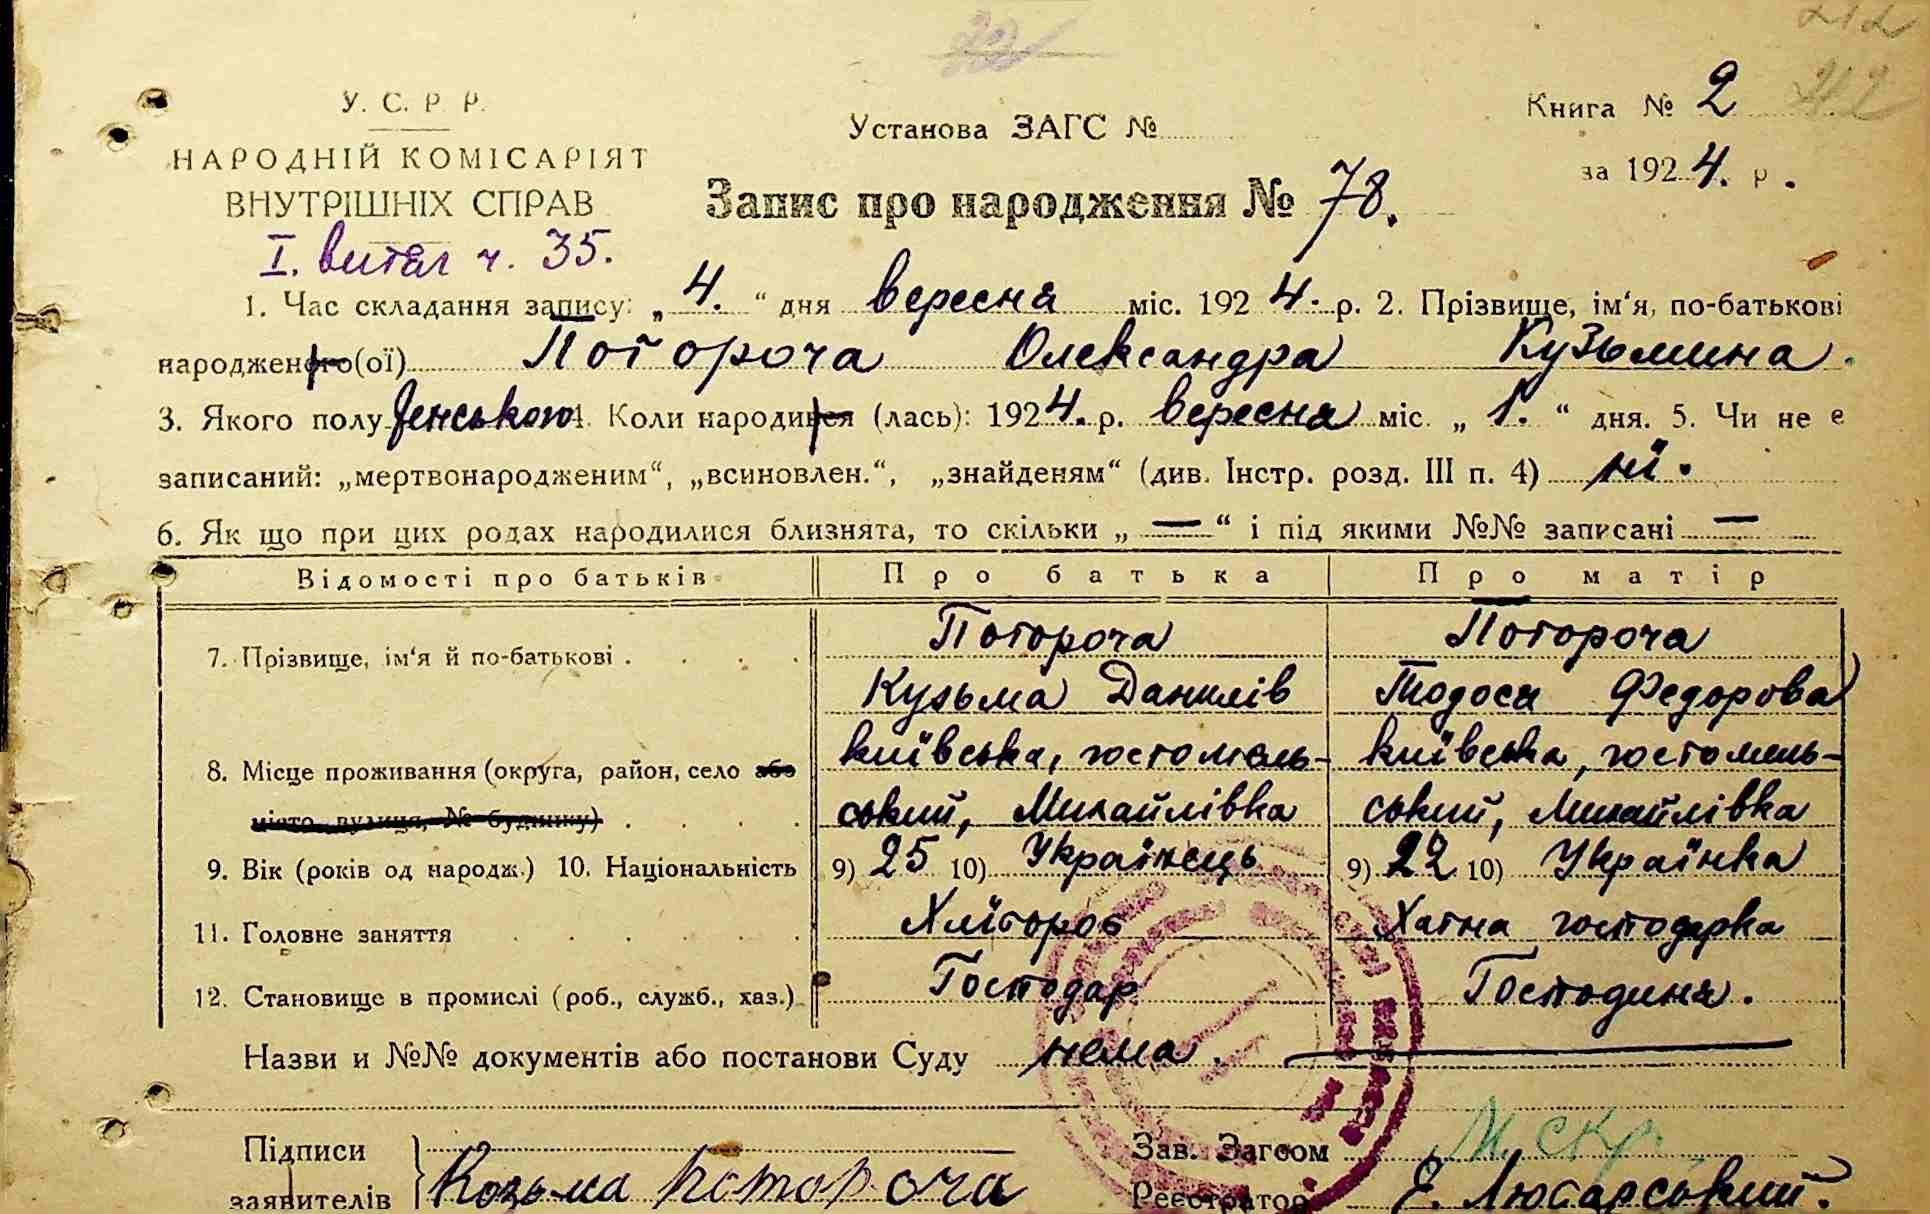 212
22
У. С. Р. Р.
НАРОДНІЙ КОМІСАРІЯТ
ВНУТРІШНІХ СПРАВ
Установа ЗАГС №
Книга № 2
за 1924. р.
Запис про народження № 78.
I. витяг ч. 35.
1. Час складання запису: „4.“ дня вересня міс. 1924. р. 2. Прізвище, ім‘я, по-батькові
народженого(ої) Потороча Олександра Кузьмина.
3. Якого полу женського 4. Коли народився (лась): 1924. р. вересня міс. „1.“ дня. 5. Чи не є
записаний: „мертвонародженим“, „всиновлен.“, „знайденям“ (див. Інстр. розд. III п. 4) ні.
6. Як що при цих родах народилися близнята, то скільки „—“ і під якими №№ записані —
Відомості про батьків Про батька Про матір
7. Прізвище, ім‘я й по-батькові . . . . Потороча Потороча
Кузьма Данилів Тодося Федорова
8. Місце проживання (округа, район, село або київська, гостомель- київська, гостомель-
місто, вулиця, № будинку) . . . . ський, Михайлівка ський, Михайлівка
9. Вік (років од народж.) 10. Національність 9) 25 10) Українець 9) 22 10) Українка
11. Головне заняття . . . . . Хлібороб Хатна господарка
12. Становище в промислі (роб., служб., хаз.) Господар Господиня.
Назви и №№ документів або постанови Суду нема.
Підписи
заявителів Козьма Потороча
Зав. Загсом
Реєстратор: Є. Любарський.